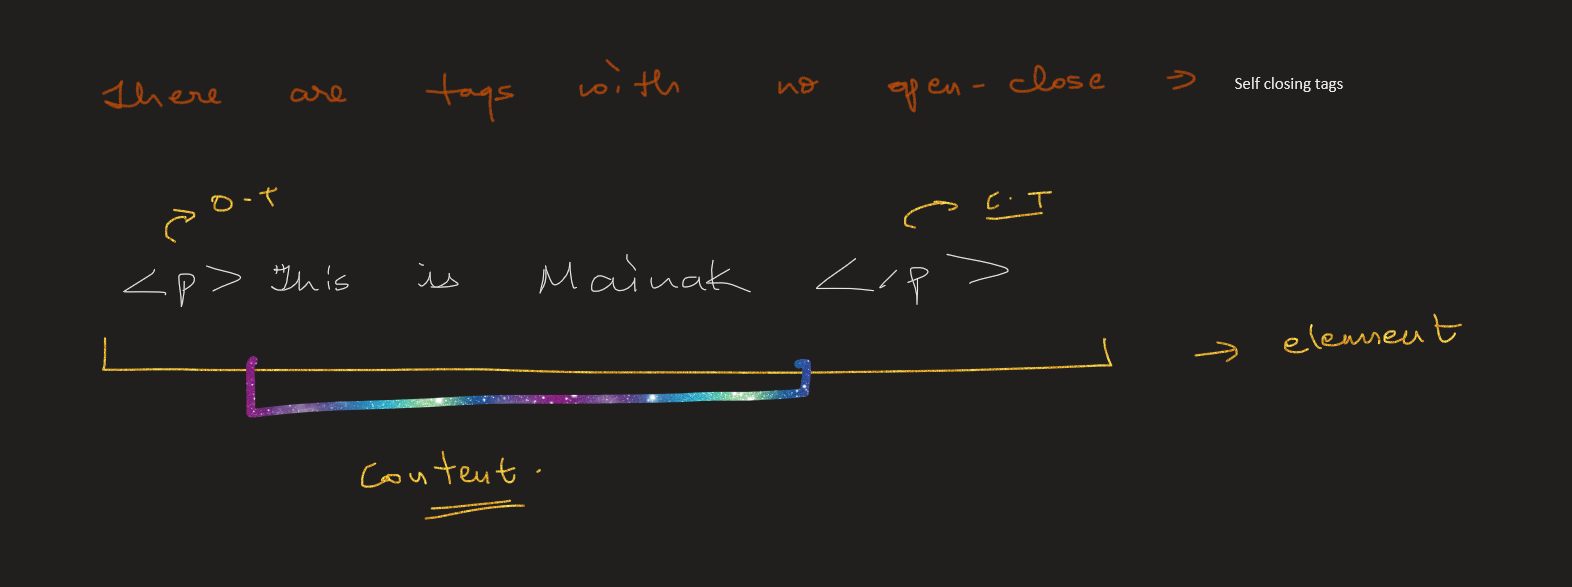 There are tags with no open-close → Self closing tags
O-T C.T
<p> This is Mainak </p>
→ element
Content.